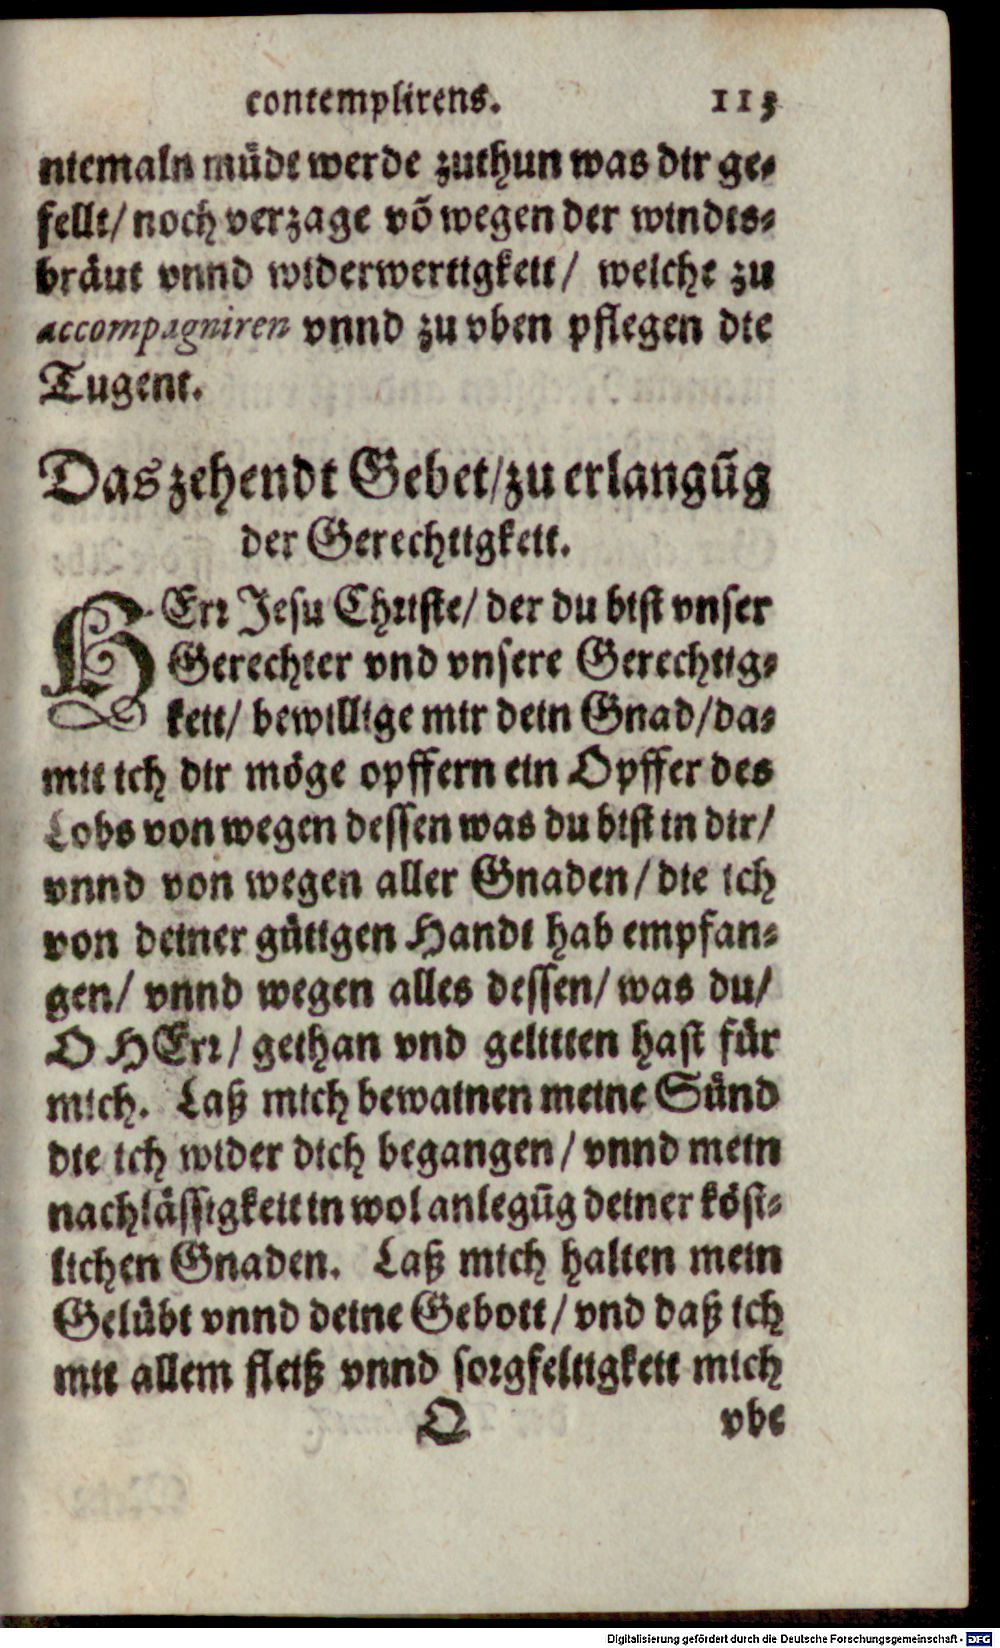 contemplirens. 113
niemaln müde werde zuthun was dir ge⸗
fellt/ noch verzage võ wegen der windts⸗
bräut vnnd widerwertigkeit/ welche zu
accompagniren vnnd zu vben pflegen die
Tugent.
Das zehendt Gebet/zu erlangũg
der Gerechtigkeit.
HErr Jesu Christe/ der du bist vnser
Gerechter vnd vnsere Gerechtig⸗
keit/ bewillige mir dein Gnad/da⸗
mit ich dir möge opffern ein Opffer des
Lobs von wegen dessen was du bist in dir/
vnnd von wegen aller Gnaden/die ich
von deiner gütigen Handt hab empfan⸗
gen/ vnnd wegen alles dessen/ was du/
O HErr/ gethan vnd gelitten hast für
mich. Laß mich bewainen meine Sünd
die ich wider dich begangen/ vnnd mein
nachlässigkeit in wol anlegũg deiner köst⸗
lichen Gnaden. Laß mich halten mein
Gelübt vnnd deine Gebott/ vnd daß ich
mit allem fleiß vnnd sorgfeltigkeit mich
Q vbe
Digitalisierung gefördert durch die Deutsche Forschungsgemeinschaft - DFG